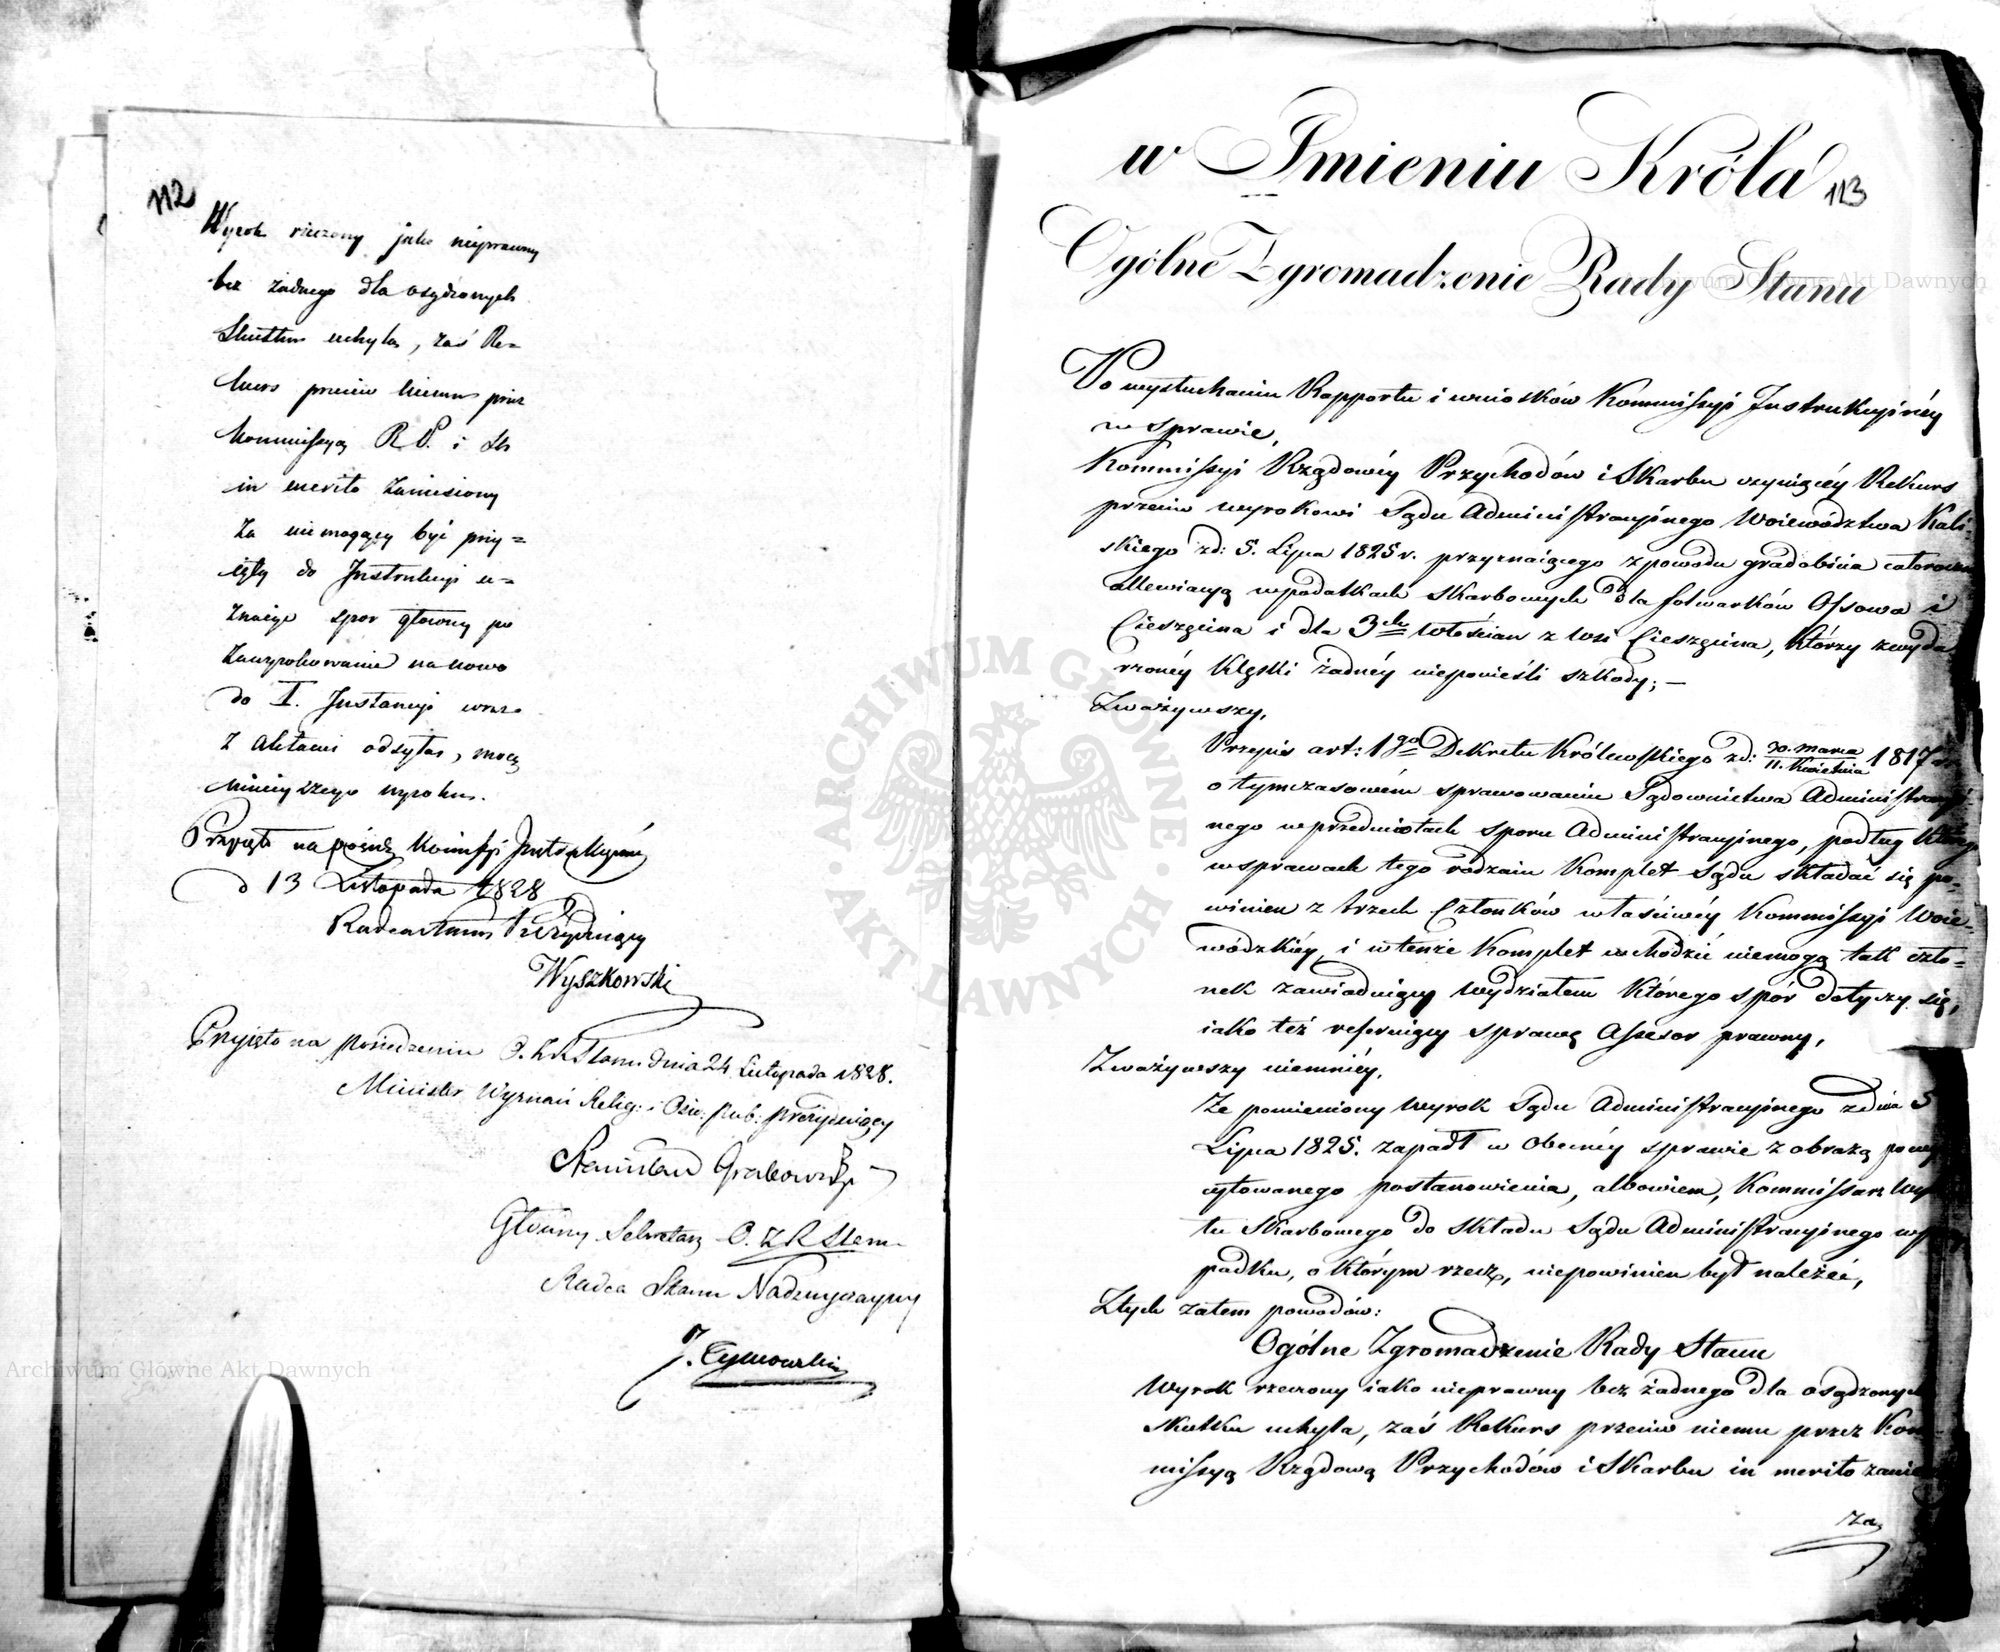 112
Wyrok rzeczony jako nieprawny
bez żadnego dla osądzonych
Skutku uchyla, zaś Re=
kurs przeciw niemu przez
Kommissyą R. P. i Sk
in merito zaniesiony
Za niemogący być przy=
ięty do Instrukcyi u=
znaje spor głowny po
zawyrokowanie na nowo
do I. Instancyi wraz
z aktami odsyła, mocą
ninieyszego wyroku.
Przyjęto na posiedz Kommissyi Instrukcyiney
d 13 Listopada 1828
Radca Stanu Prezyduiący
Wyszkowski
Przyjęto na posiedzeniu O. Z. R. Stanu dnia 24 Listopada 1828.
Minister Wyznań Relig: i Ośw: Pub: Prezyduiący
Stanisław Grabowski
Głowny Sekretarz O. Z. R. Stanu
Radca Stanu Nadzwyczayny
J. Tymowski
w Imieniu Króla
113
Ogólne Zgromadzenie Rady Stanu
Po wysłuchaniu Rapportu i wniosków Kommissyi Instrukcyinéy
w sprawie,
Kommissyi Rządowéy Przychodów i Skarbu czyniącéy Rekurs
przeciw wyrokowi Sądu Administracyinego Woiewództwa Kali-
skiego z d: 5. Lipca 1825 r. przyznaiącego z powodu gradobicia całoroczn
allewiacyą w podatkach Skarbowych dla folwarków Ossowa i
Cieszęcina i dla 3ch Włościan z wsi Cieszęcina, którzy z wyda
rzonéy klęski żadnéy nieponieśli szkody; —
Zważywszy,
Przepis art: 1go Dekretu Królewskiego z d: 30. marca / 11. Kwietnia 1817 r.
o tymczasowém sprawowaniu Sądownictwa Administracyi-
nego w przedmiotach sporu Administracyinego, podług którego
w sprawach tego rodzaiu Komplet Sądu składać się po-
winien z trzech Członków właściwéy Kommissyi Woie-
wódzkiéy, i w tenże Komplet wchodzić niemogą tak czło-
nek zawiaduiący Wydziałem którego spór dotyczy się,
iako też referuiący sprawę Assesor prawny,
Zważywszy niemniéy,
Że pomieniony Wyrok Sądu Administracyinego z dnia 5
Lipca 1825. zapadł w obecnéy sprawie z obrazą powy
cytowanego postanowienia, albowiem, Kommissarz Wy
łu Skarbowego do składu Sądu Administracyinego w
padku, o którym rzecz, niepowinien był należéć,
Z tych zatem powodów:
Ogólne Zgromadzenie Rady Stanu
Wyrok rzeczony iako nieprawny bez żadnego dla osądzonych
skutku uchyla, zaś Rekurs przeciw niemu przez Kom-
missyą Rządową Przychodów i Skarbu in merito zanie
za
Archiwum Główne Akt Dawnych
Archiwum Główne Akt Dawnych
ARCHIWUM GŁÓWNE · AKT DAWNYCH ·